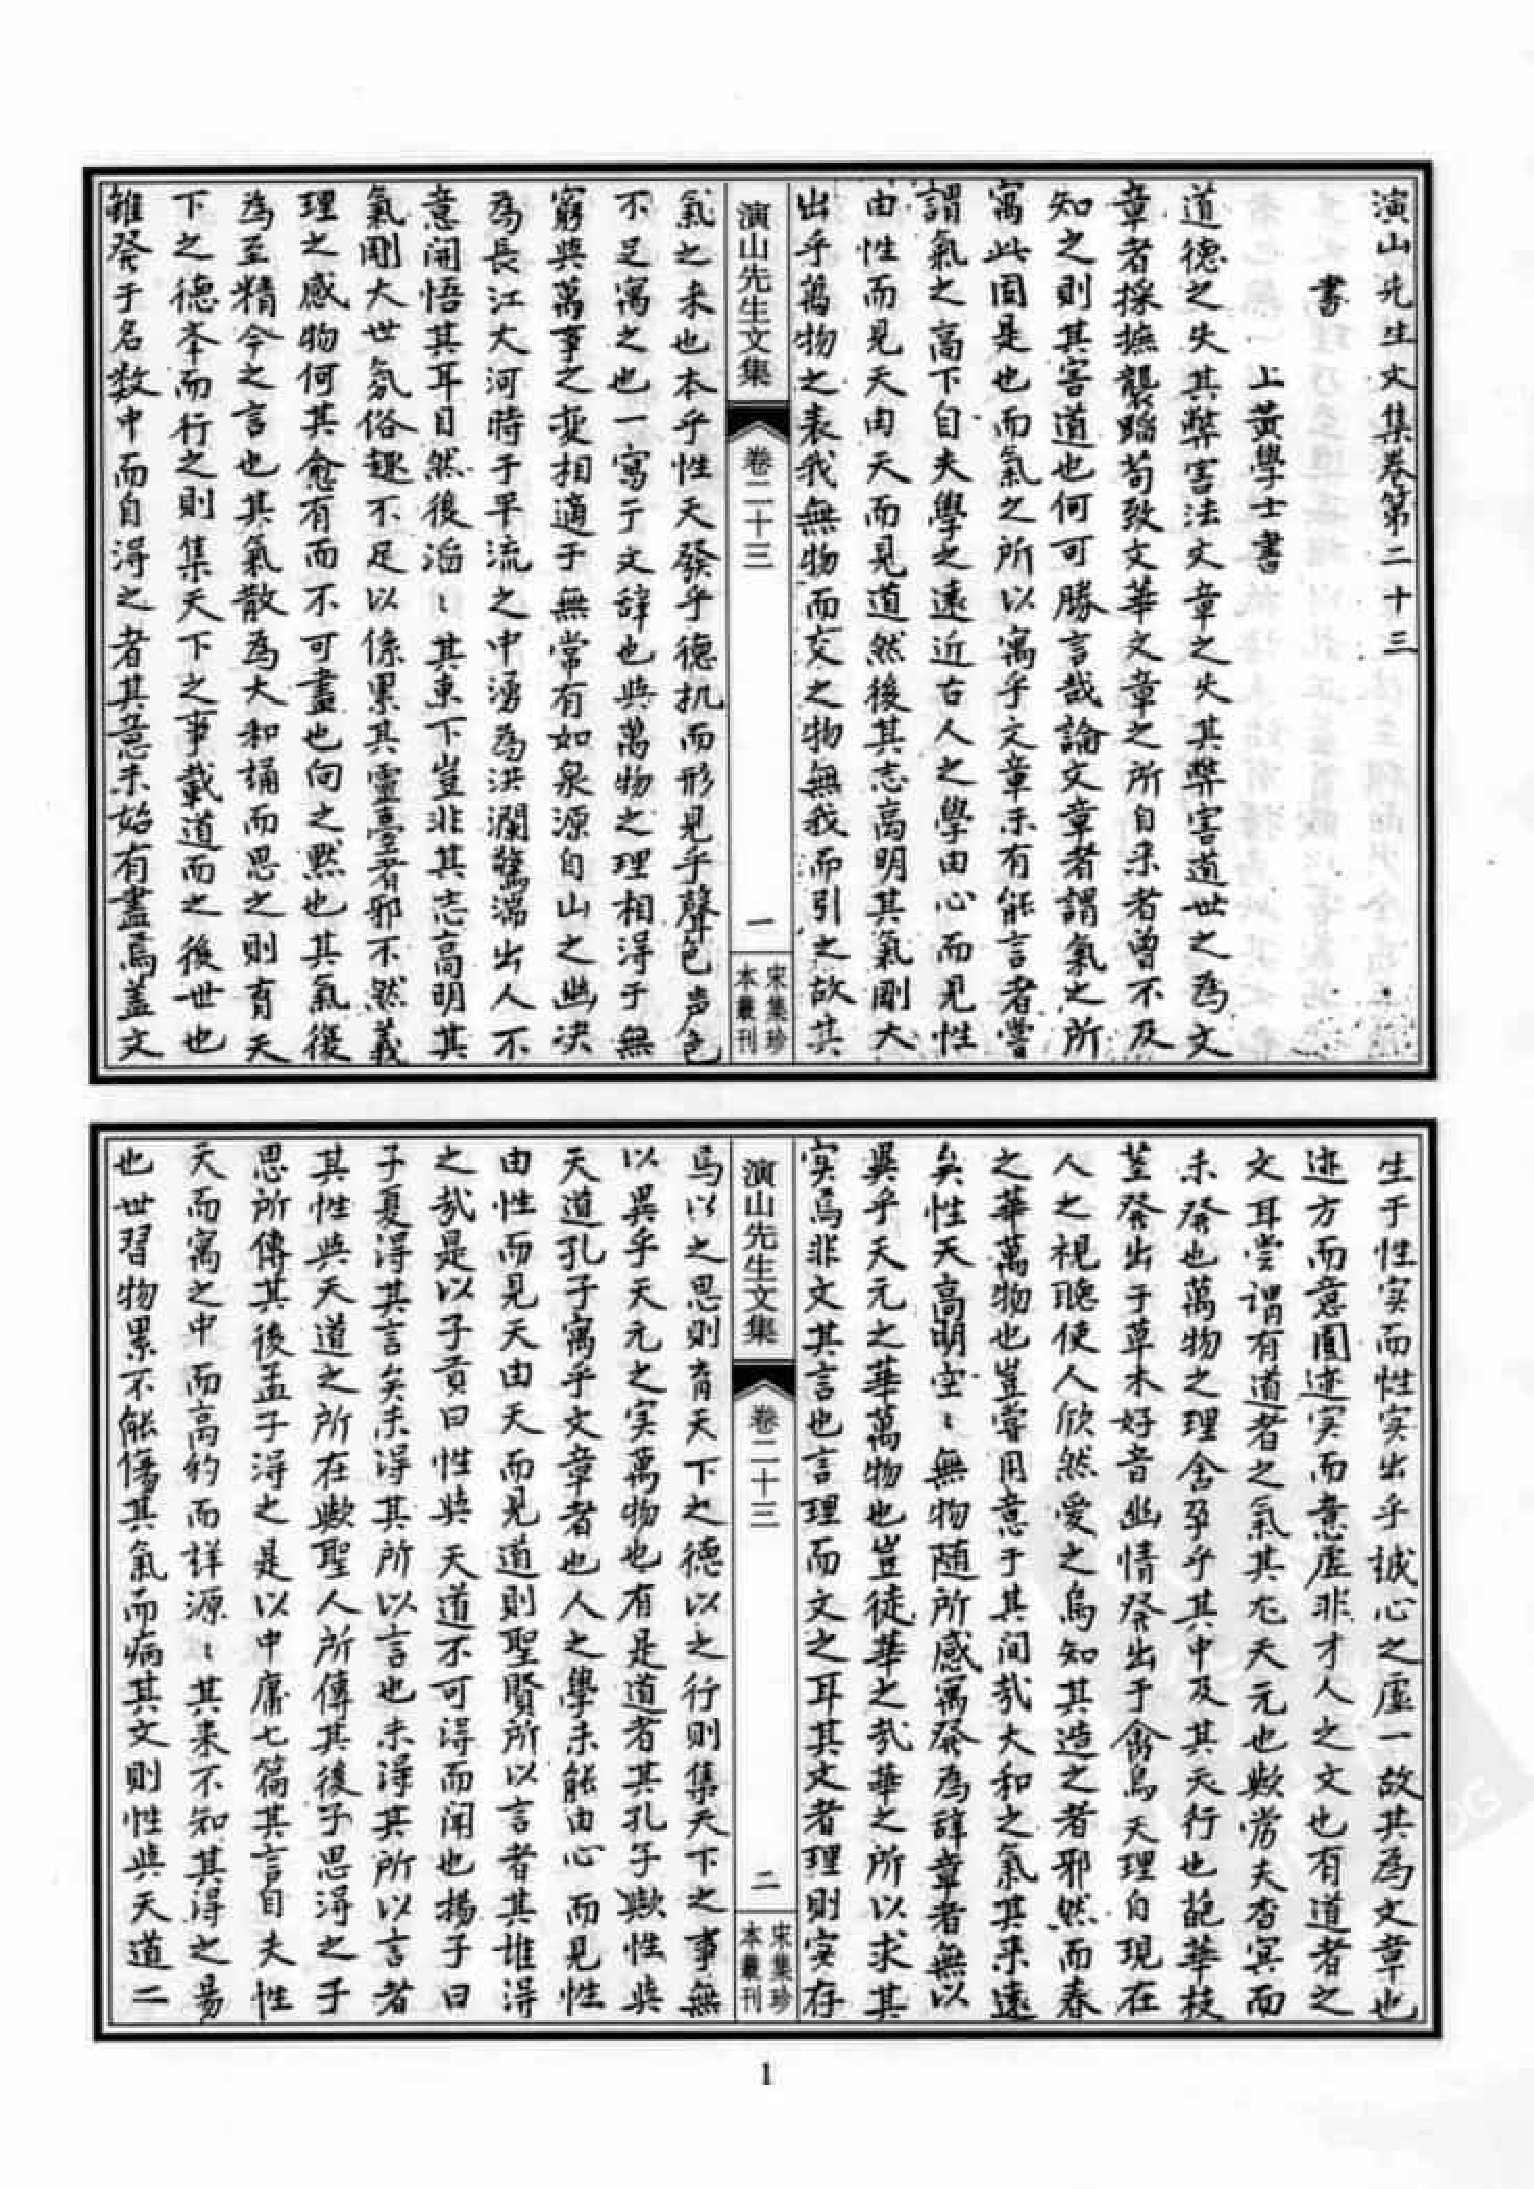 演山先生文集卷第二十三
書
上黃學士書
道德之失其弊害法文章之失其弊害道世之為文
章者採摭襲蹈苟致文華文章之所自来者曾不及
知之則其害道也何可勝言哉論文章者謂氣之所
寓此固是也而氣之所以寓乎文章未有能言者嘗
謂氣之高下自夫學之遠近古人之學由心而見性
由性而見天由天而見道然後其志高明其氣剛大
出乎萬物之表我無物而交之物無我而引之故其
演山先生文集
卷二十三
一
宋集珍
本叢刊
氣之来也本乎性天發乎德机而形見乎聲色声色
不足寓之也一寓于文辞也與萬物之理相得于無
窮與萬事之変相適于無常有如泉源自山之幽决
為長江大河時于平流之中湧為洪瀾驚湍出人不
意開悟其耳目然後滔〻其東下豈非其志高明其
氣剛大世氛俗趣不足以係累其靈臺者邪不然義
理之感物何其愈有而不可盡也向之默也其氣復
為至精今之言也其氣散為大和誦而思之則育天
下之德夲而行之則集天下之事載道而之後世也
雖發于名数中而自得之者其意未始有盡焉盖文
生于性实而性实出乎誠心之虛一故其為文章也
迹方而意圓迹实而意虛非才人之文也有道者之
文耳尝谓有道者之氣其尤天元也歟当夫杳冥而
未發也萬物之理含孕乎其中及其天行也葩華枝
荎發出于草木好音幽情發出于禽鳥天理自現在
人之視聴使人欣然愛之烏知其造之者邪然而春
之華萬物也豈嘗用意于其间哉大和之氣其来遠
矣性天高明空〻無物随所感寓發為辞章者無以
異乎天元之華萬物也豈徒華之哉華之所以求其
实焉非文其言也言理而文之耳其文者理則实存
演山先生文集
卷二十三
二
宋集珍
本叢刊
焉以之思則育天下之德以之行則集天下之事無
以異乎天元之实萬物也有是道者其孔子歟性與
天道孔子寓乎文章者也人之學未能由心而見性
由性而見天由天而見道則聖賢所以言者其誰得
之哉是以子贡曰性與天道不可得而闻也揚子曰
子夏得其言矣未得其所以言也未得其所以言者
其性與天道之所在歟聖人所傳其後子思得之子
思所傳其後孟子得之是以中庸七篇其言自夫性
天而寓之中而高灼而詳源〻其来不知其得之易
也世習物累不能傷其氣而病其文則性與天道二